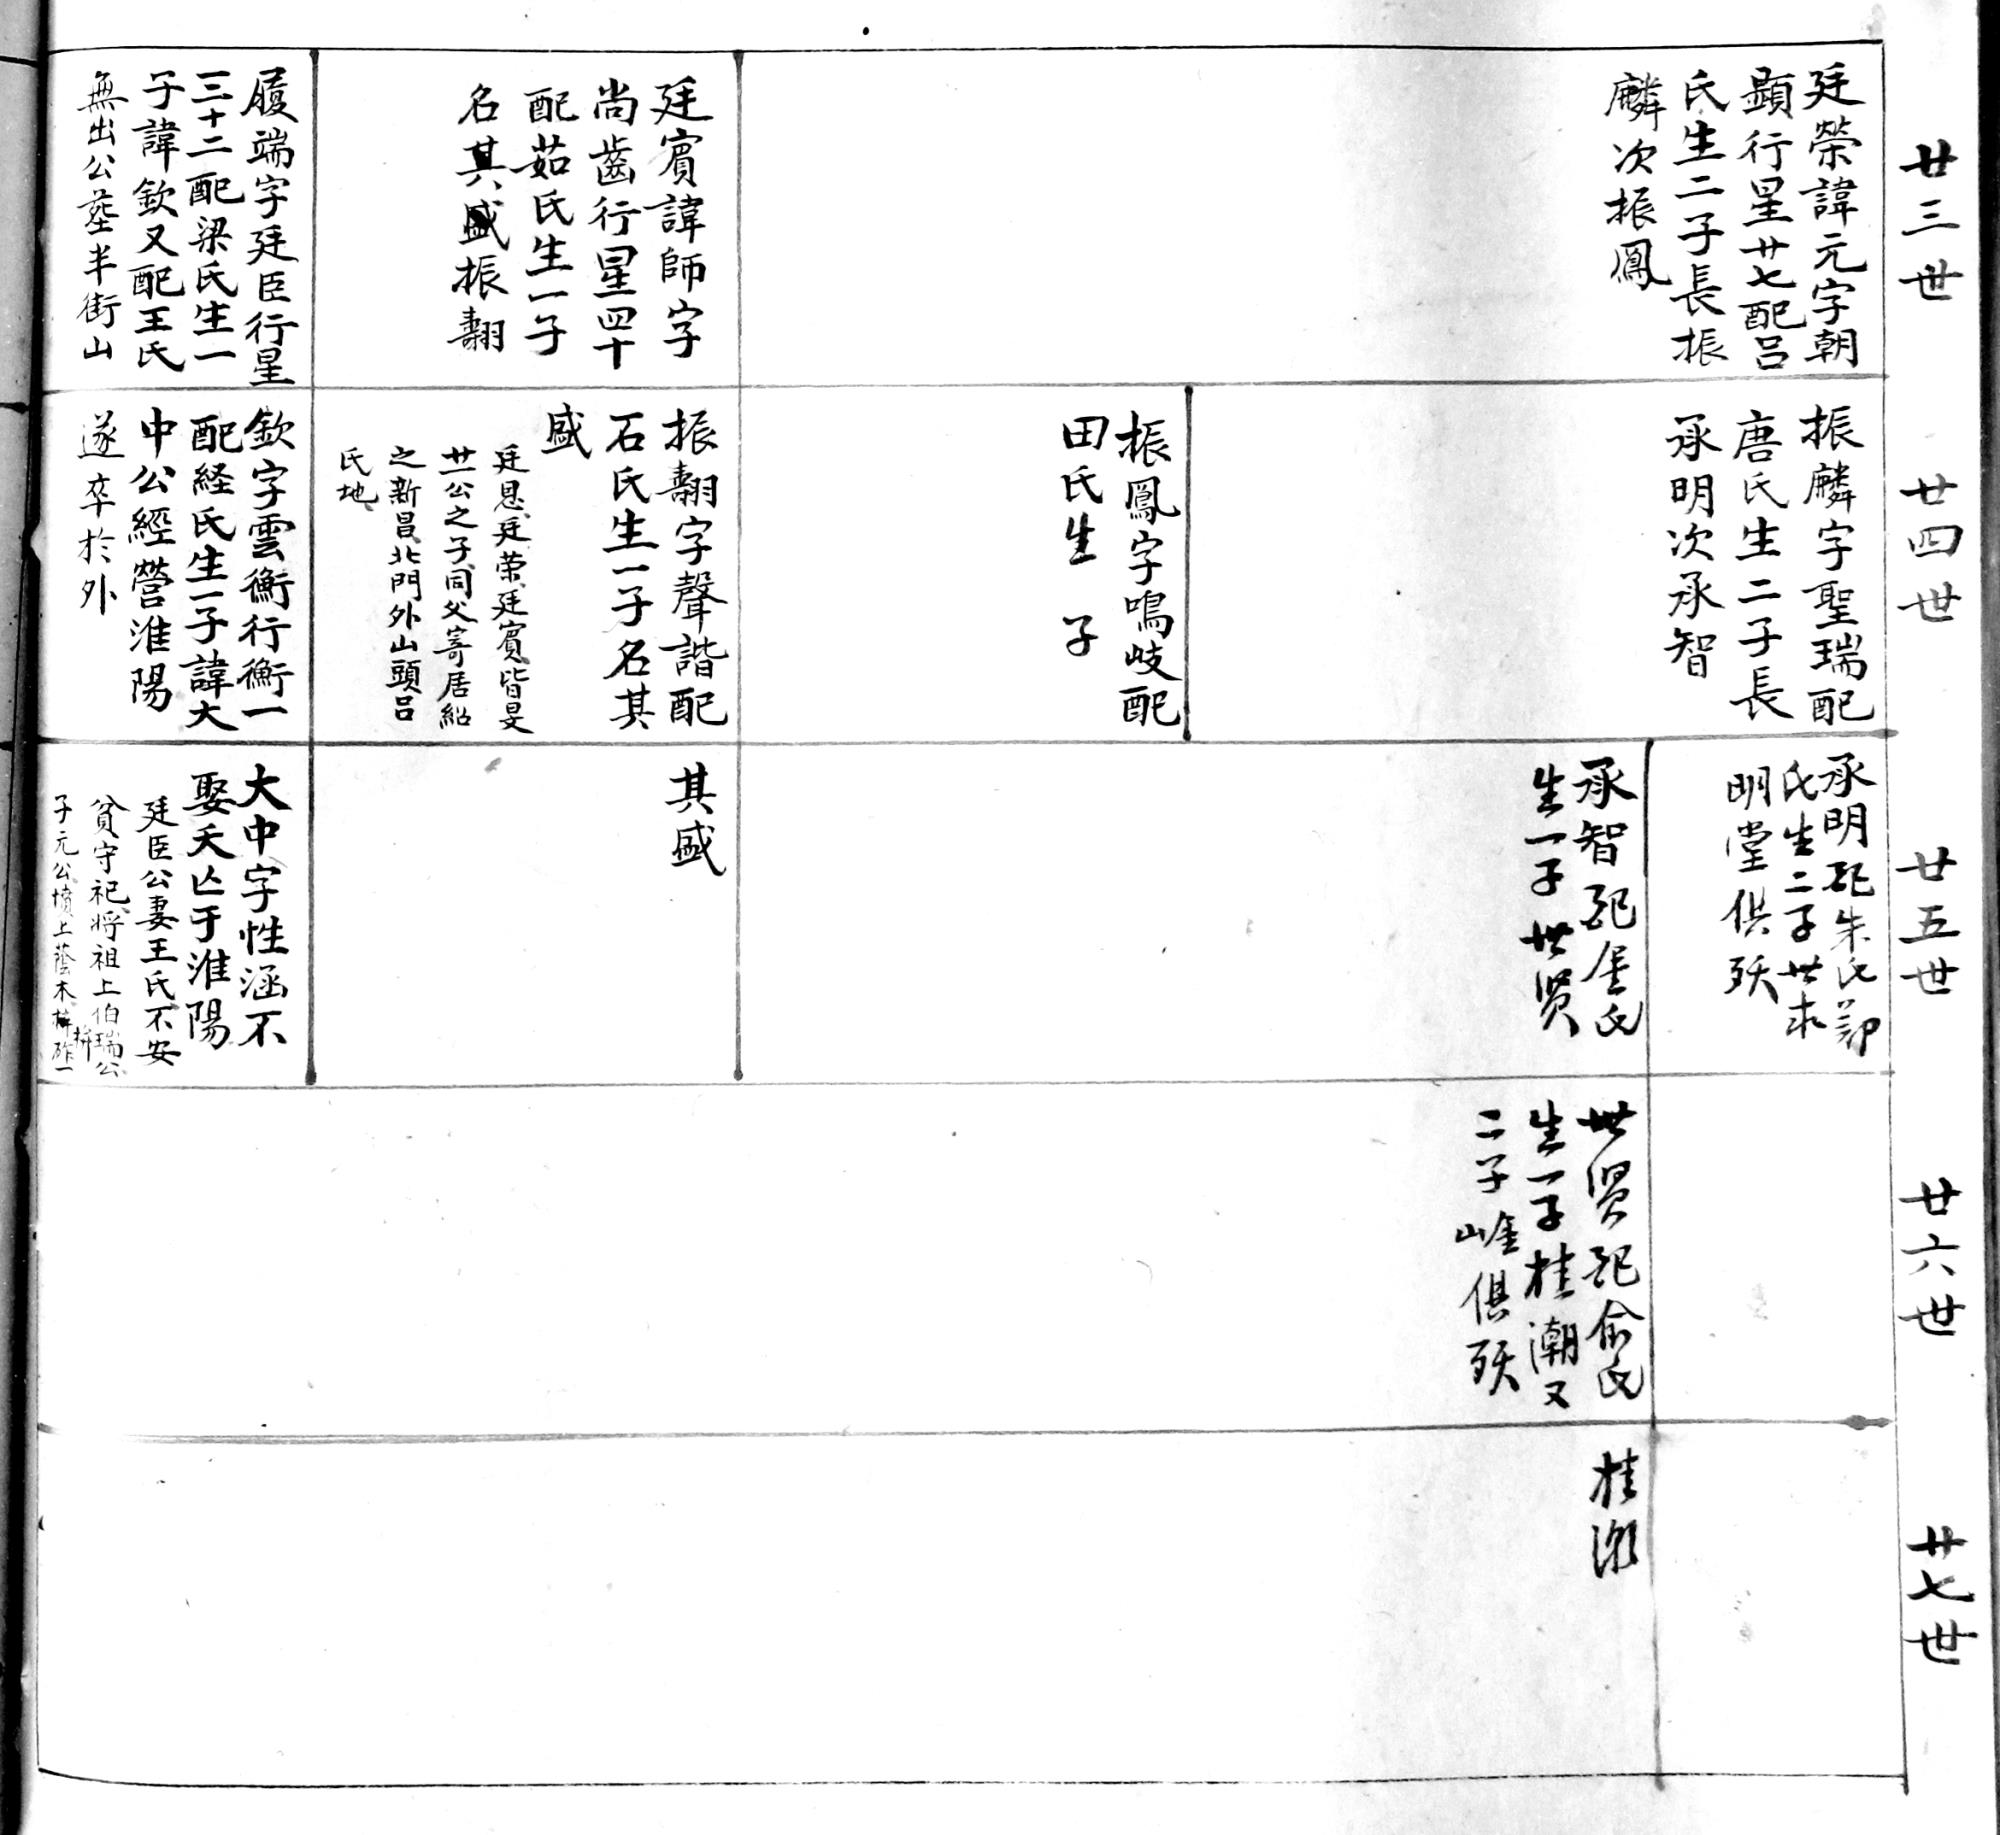 廿三世
廷榮諱元字朝
顯行星廿七配呂
氏生二子長振
麟次振鳳
廷賓諱師字
尚齒行星四十
配茹氏生一子
名其盛振翿
履端字廷臣行星
三十二配梁氏生一
子諱欽又配王氏
無出公墓半街山
廿四世
振麟字聖瑞配
唐氏生二子長
承明次承智
振鳳字鳴岐配
田氏生 子
振翿字聲諧配
石氏生一子名其
盛
廷恩廷荣廷賓皆旻
廿一公之子同父寄居紹
之新昌北門外山頭呂
氏地
欽字雲衡行衡一
配経氏生一子諱大
中公經營淮陽
遂卒於外
廿五世
承明配朱氏鄭
氏生二子世求
明堂俱殀
承智配金氏
生一子世贤
其盛
大中字性涵不
娶夭亡于淮陽
廷臣公妻王氏不安
貧守祀將祖上伯瑞公
子元公墳上蔭木拚砟一
拚
廿六世
世贤配俞氏
生一子桂潮又
二子 俱殀
廿七世
桂潮